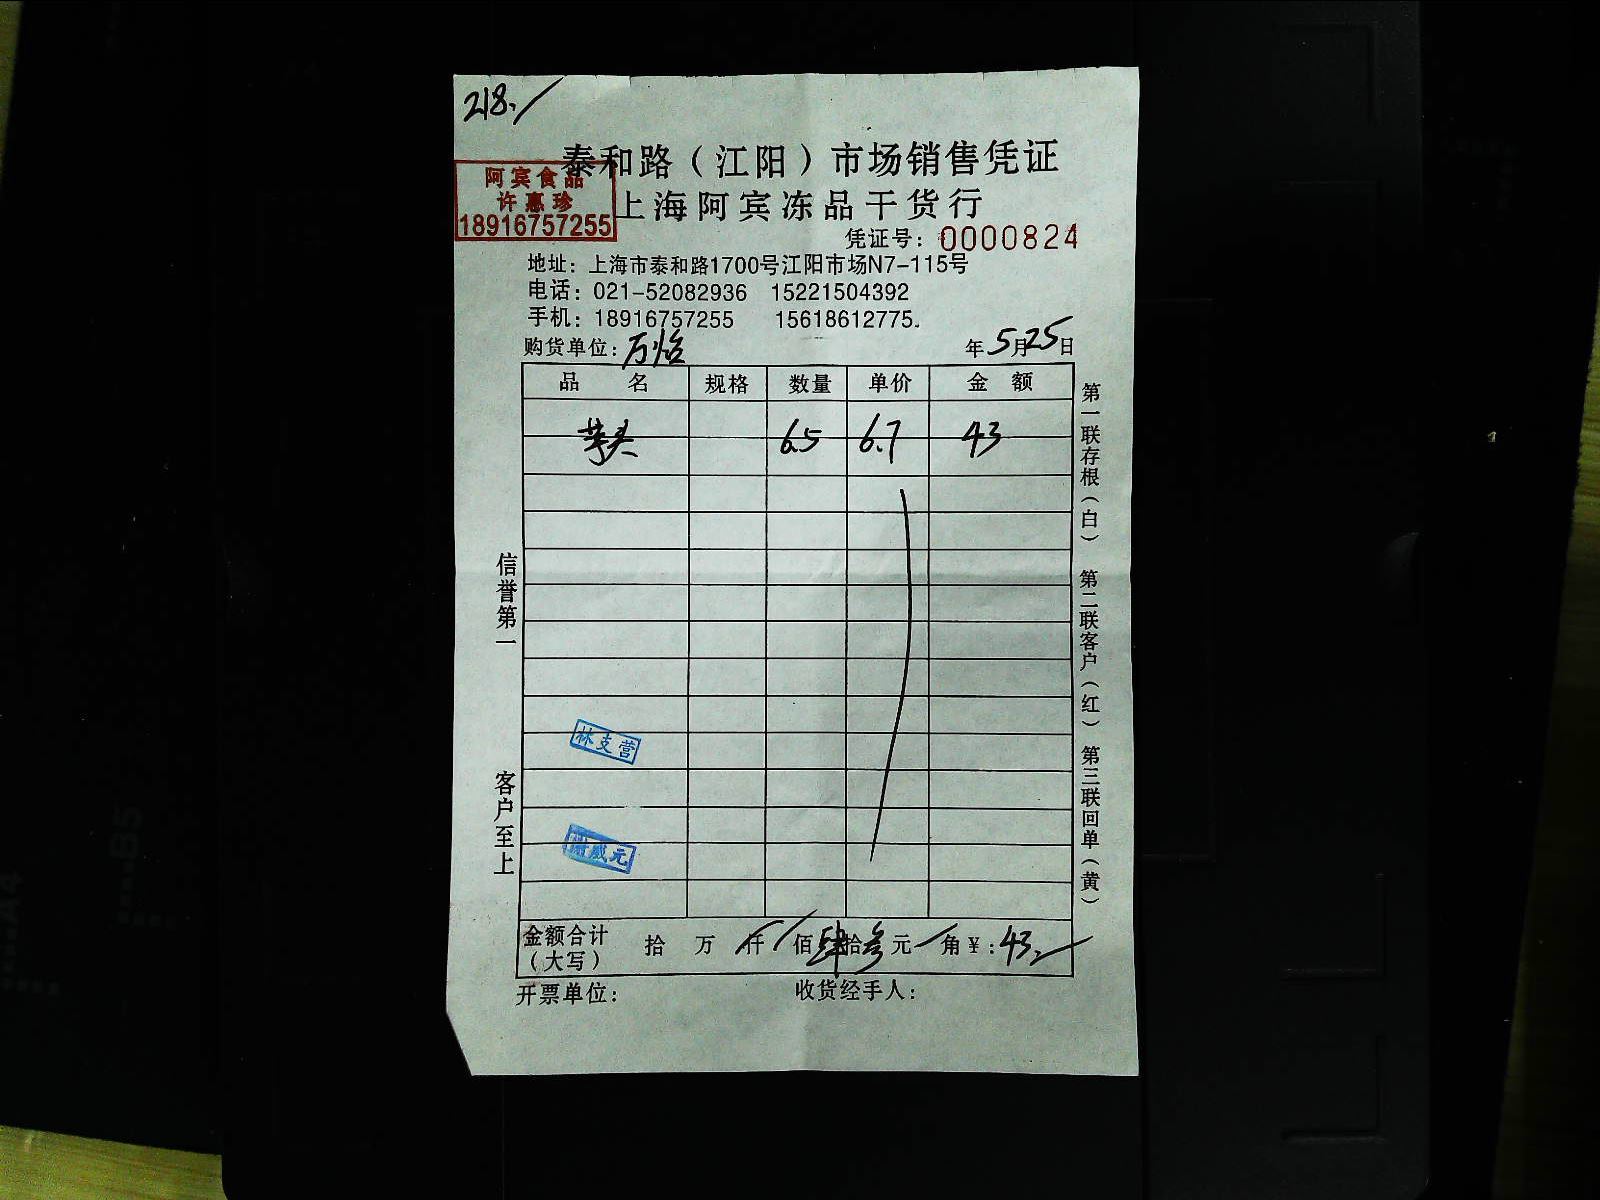 218.
泰和路（江阳）市场销售凭证
阿宾食品
许惠珍
18916757255
上海阿宾冻品干货行
凭证号：0000824
地址：上海市泰和路1700号江阳市场N7-115号
电话：021-52082936 15221504392
手机：18916757255 15618612775.
购货单位：万怡 年5月25日
品名 规格 数量 单价 金额
芋头 6.5 6.7 43
信誉第一
客户至上
林支营
威元
第一联存根（白） 第二联客户（红） 第三联回单（黄）
金额合计（大写） 拾 万 仟 佰 肆拾叁元 角 ￥：43
开票单位： 收货经手人：